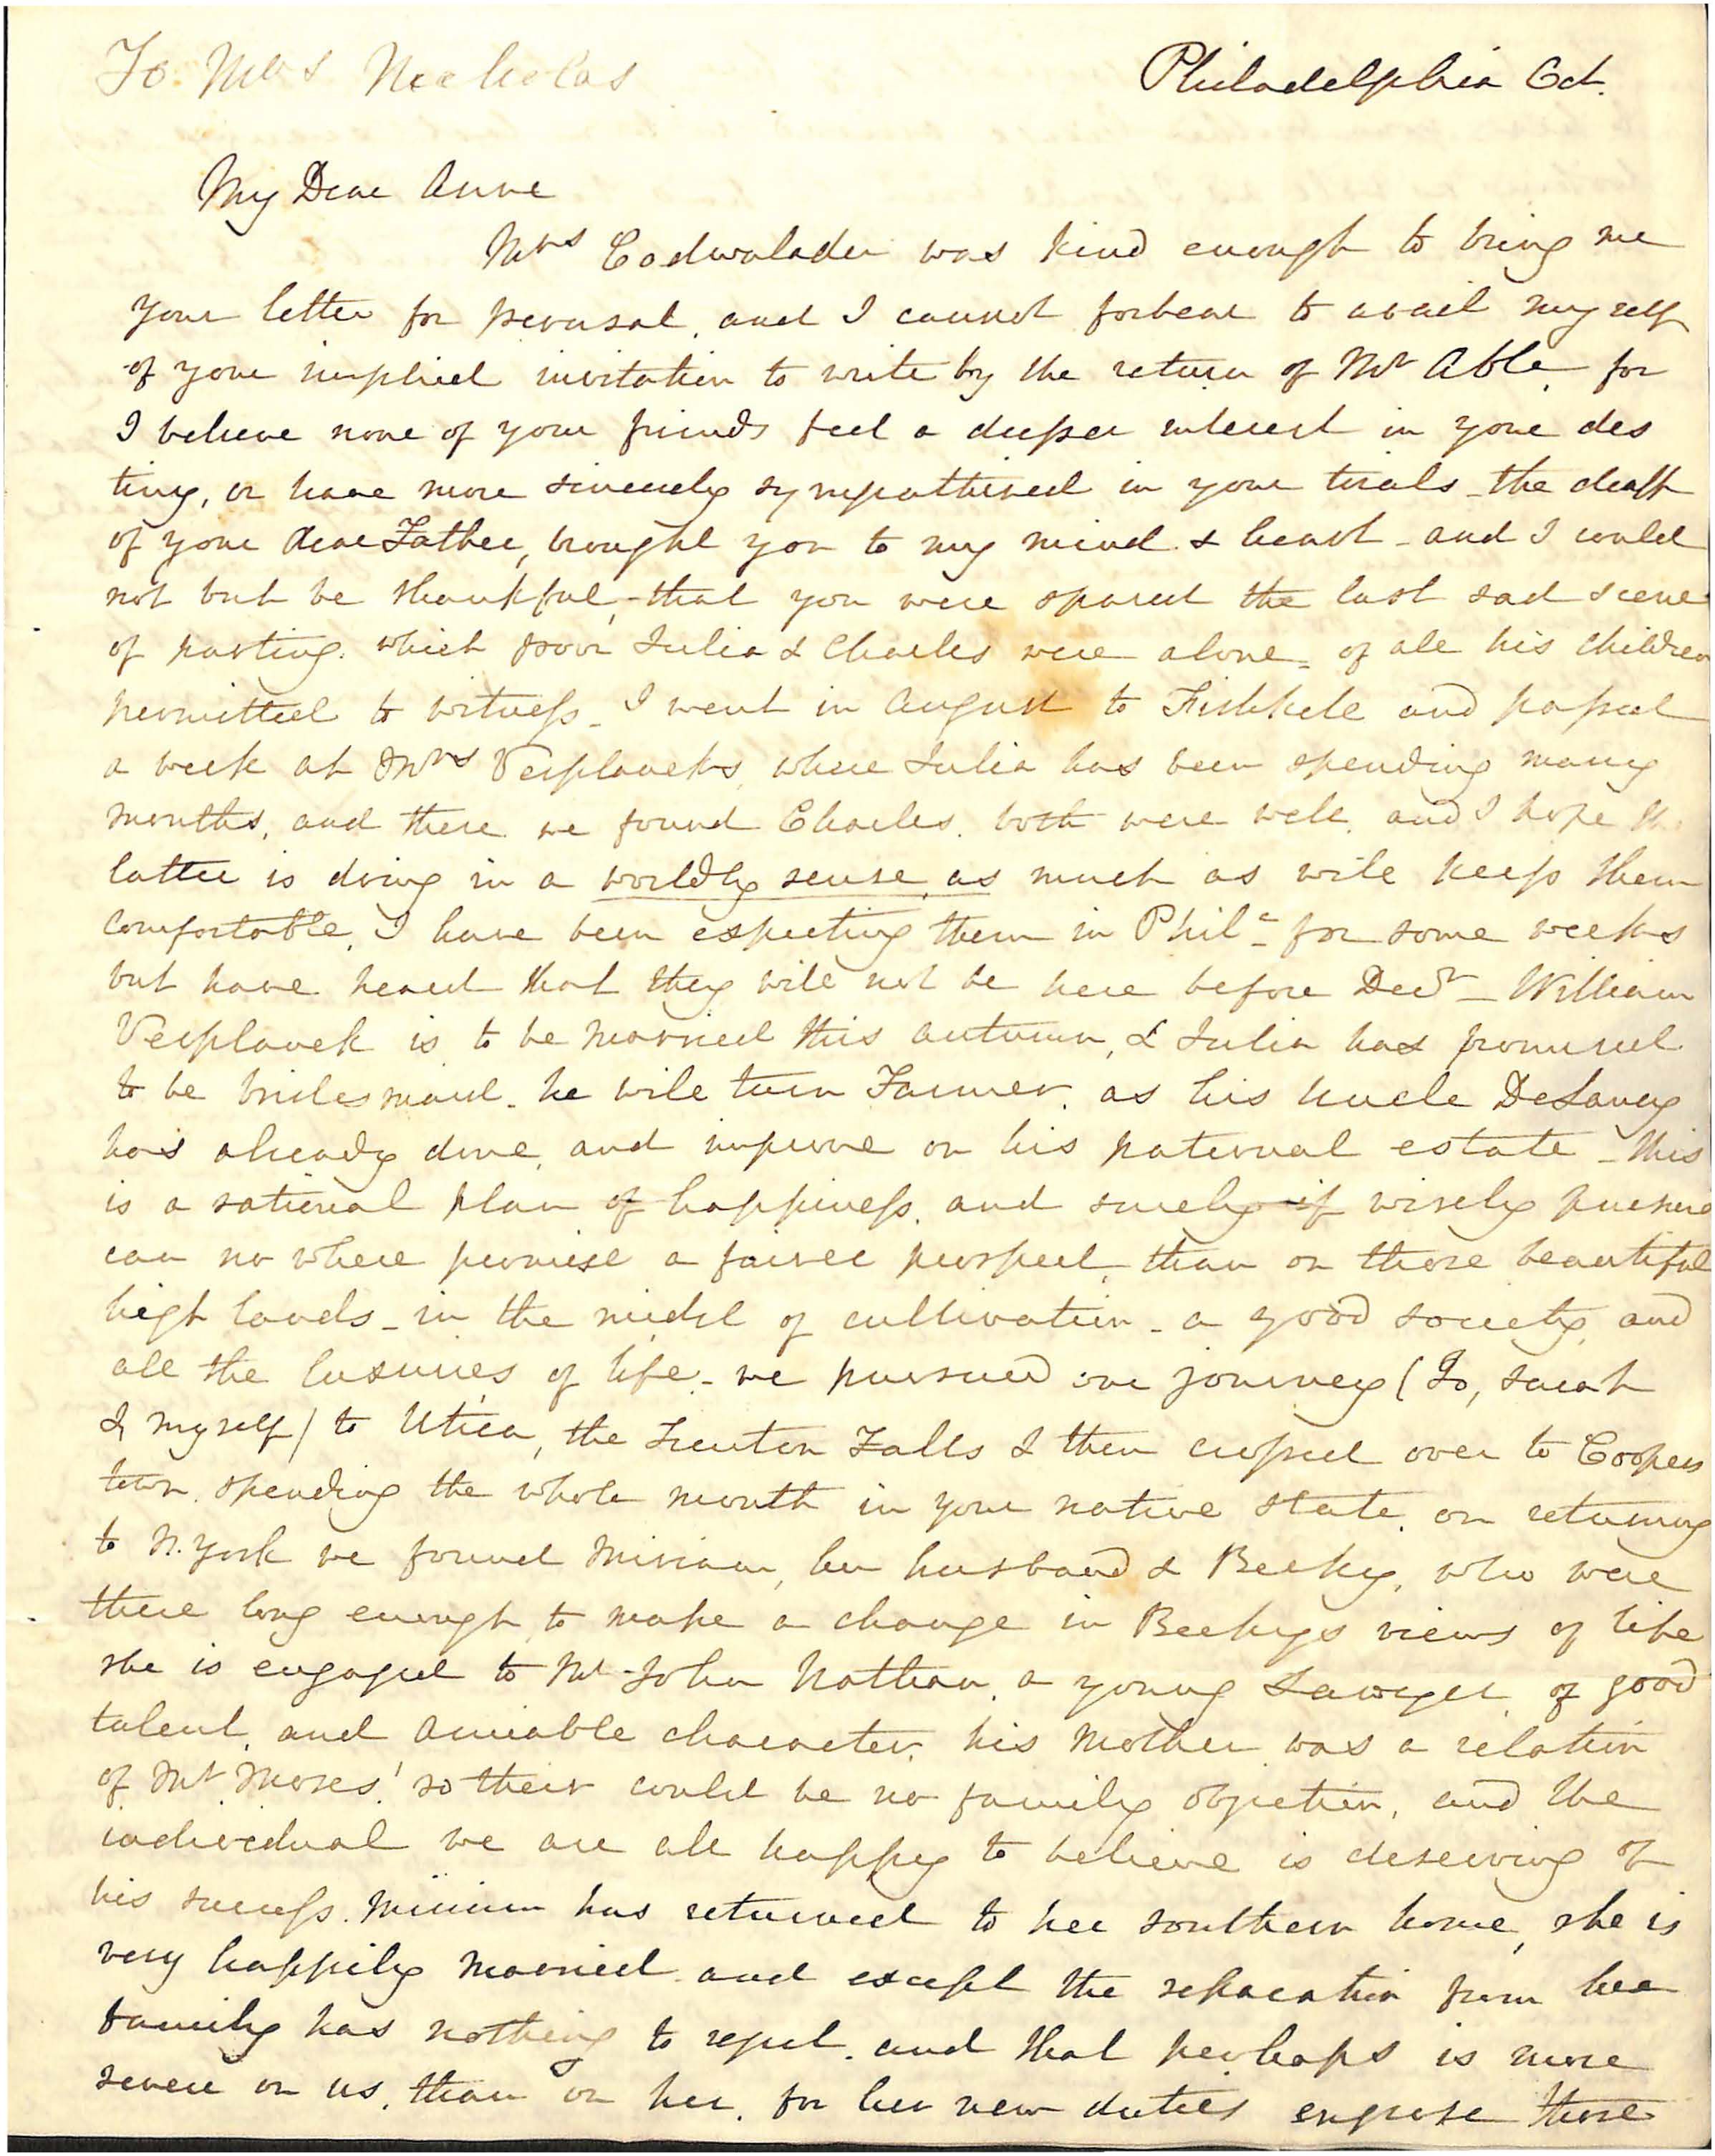 To Mrs Nicholas
Philadelphia Oct.
My Dear Anne
Mrs Cadwalader was kind enough to bring me
your letter for perusal, and I cannot forbear to avail myself
of your implied invitation to write by the return of Mr Able, for
I believe none of your friends feel a deeper interest in your des
tiny, or have more sincerely sympathised in your trials - the death
of your dear Father, brought you to my mind & heart - and I could
not but be thankful, that you were spared the last sad scene
of parting. which poor Julia & Charles were alone - of all his children
permitted to witness - I went in August to Fishkill and passed
a week at Mrs Verplancks, where Julia has been spending many
months, and there we found Charles. both were well, and I hope the
latter is doing in a worldly sense, as much as will keep them
comfortable, I have been expecting them in Phila- for some weeks
but have heard that they will not be here before Decr - William
Verplanck is to be married this autumn, & Julia has promised
to be bridesmaid. he will turn Farmer, as his uncle DeLancy
has already done, and improve on his paternal estate - this
is a rational plan of happiness, and surely if wisely pursued
can no where promise a fairer prospect, than on those beautiful
high lands - in the midst of cultivation - a good society, and
all the luxuries of life - we pursued our journey (Jo, Sarah
& myself) to Utica, the Trenton Falls & then crossed over to Coopers
town. spending the whole month in your native state. on returning
to N. York we found Miriam, her husband & Becky, who were
there long enough to make a change in Beckys views of life
she is engaged to Mr John Nathan, a young Lawyer, of good
talent, and amiable character, his Mother was a relation
of Mr. Moses' so their could be no family objection, and the
individual we are all happy to believe is deserving of
his success. Miriam has returned to her southern home, she is
very happily married and except the separation from her
family has nothing to regret. and that perhaps is more
severe on us, than on her, for her new duties engross those